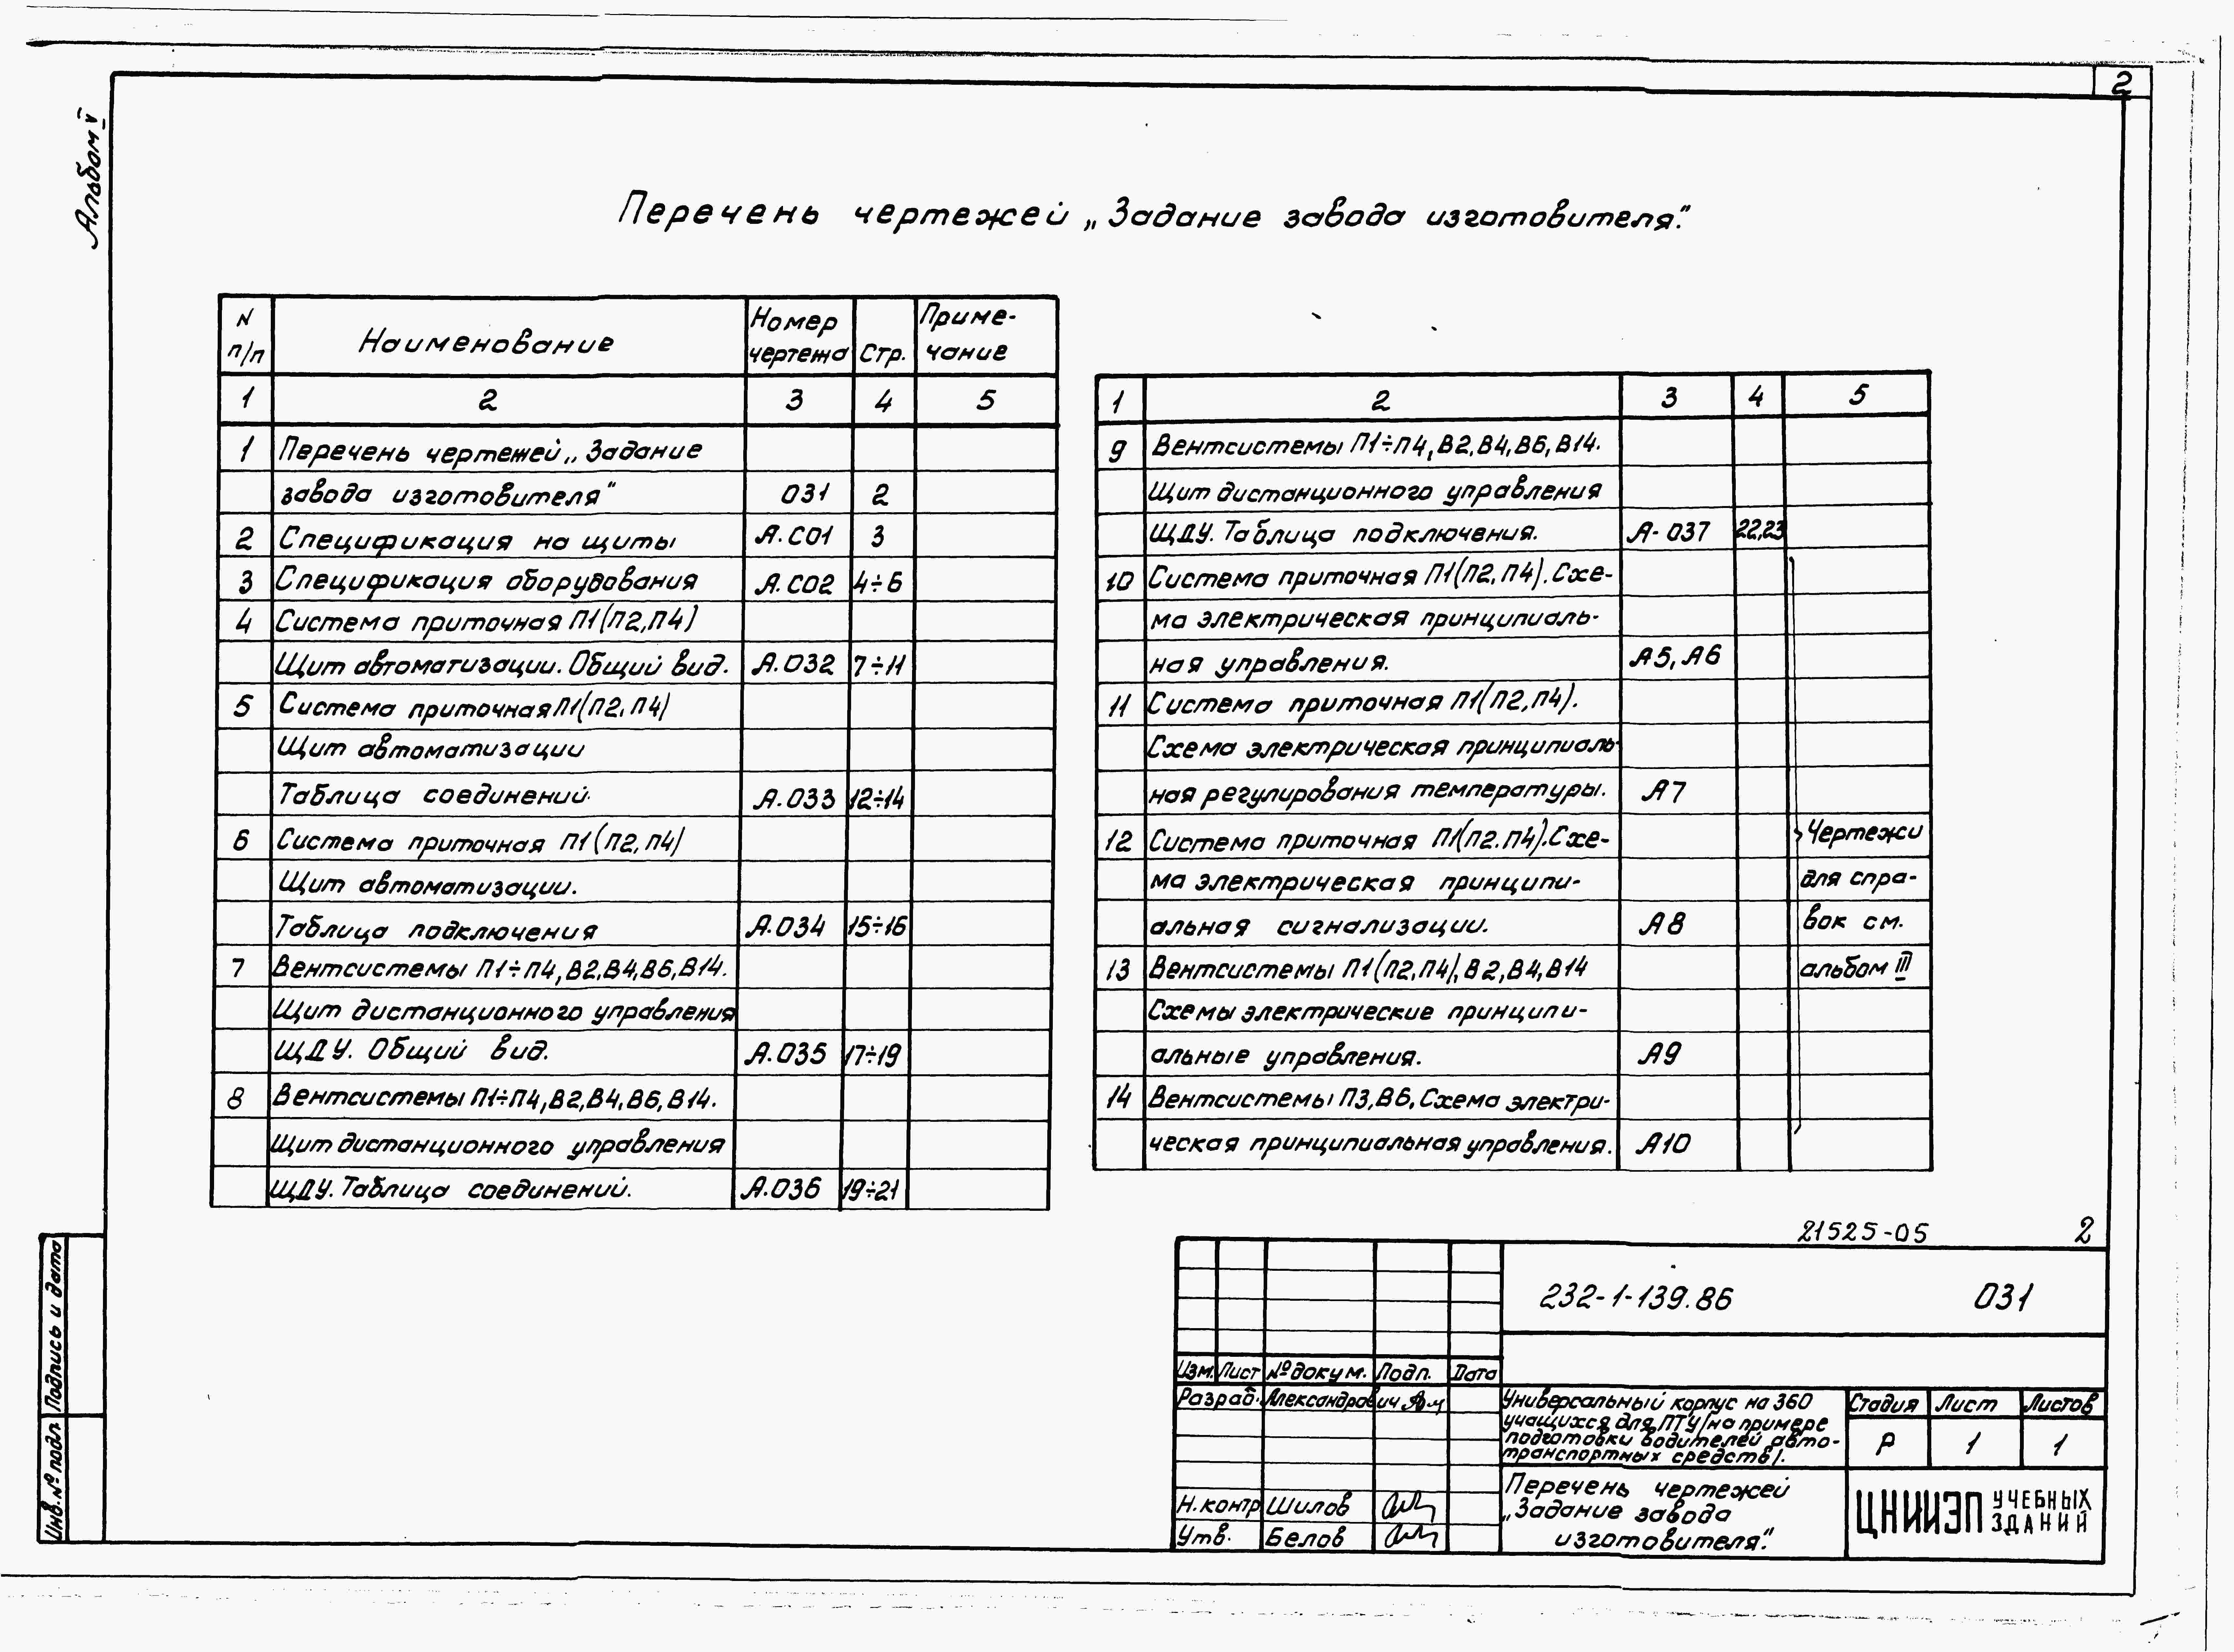 2
Альбом V
Перечень чертежей „Задание завода изготовителя".
N п/п Наименование Номер чертежа Стр. Приме-чание
1 2 3 4 5
1 Перечень чертежей „Задание
завода изготовителя" 031 2
2 Спецификация на щиты А.С01 3
3 Спецификация оборудования А.С02 4÷6
4 Система приточная П1(П2,П4)
Щит автоматизации. Общий вид. А.032 7÷11
5 Система приточная П1(П2,П4)
Щит автоматизации
Таблица соединений. А.033 12÷14
6 Система приточная П1(П2,П4)
Щит автоматизации.
Таблица подключения А.034 15÷16
7 Вентсистемы П1÷П4,В2,В4,В6,В14.
Щит дистанционного управления
ЩДУ. Общий вид. А.035 17÷19
8 Вентсистемы П1÷П4,В2,В4,В6,В14.
Щит дистанционного управления
ЩДУ. Таблица соединений. А.036 19÷21
1 2 3 4 5
9 Вентсистемы П1÷П4,В2,В4,В6,В14.
Щит дистанционного управления
ЩДУ. Таблица подключения. А-037 22,23
10 Система приточная П1(П2,П4). Схе-
ма электрическая принципиаль-
ная управления. А5, А6
11 Система приточная П1(П2,П4).
Схема электрическая принципиаль-
ная регулирования температуры. А7
12 Система приточная П1(П2.П4).Схе- Чертежи
ма электрическая принципи- для спра-
альная сигнализации. А8 вок см.
13 Вентсистемы П1(П2,П4),В2,В4,В14 альбом III
Схемы электрические принципи-
альные управления. А9
14 Вентсистемы П3,В6, Схема электри-
ческая принципиальная управления. А10
21525-05 2
232-1-139.86 031
Изм. Лист № докум. Подп. Дата
Разраб. Александрович
Н.контр Шилов
Утв. Белов
Универсальный корпус на 360
учащихся для ПТУ/на примере
подготовки водителей авто-
транспортных средств/.
Стадия Лист Листов
Р 1 1
Перечень чертежей
„Задание завода
изготовителя".
ЦНИИЭП УЧЕБНЫХ ЗДАНИЙ
Подпись и дата
Инв. № подл